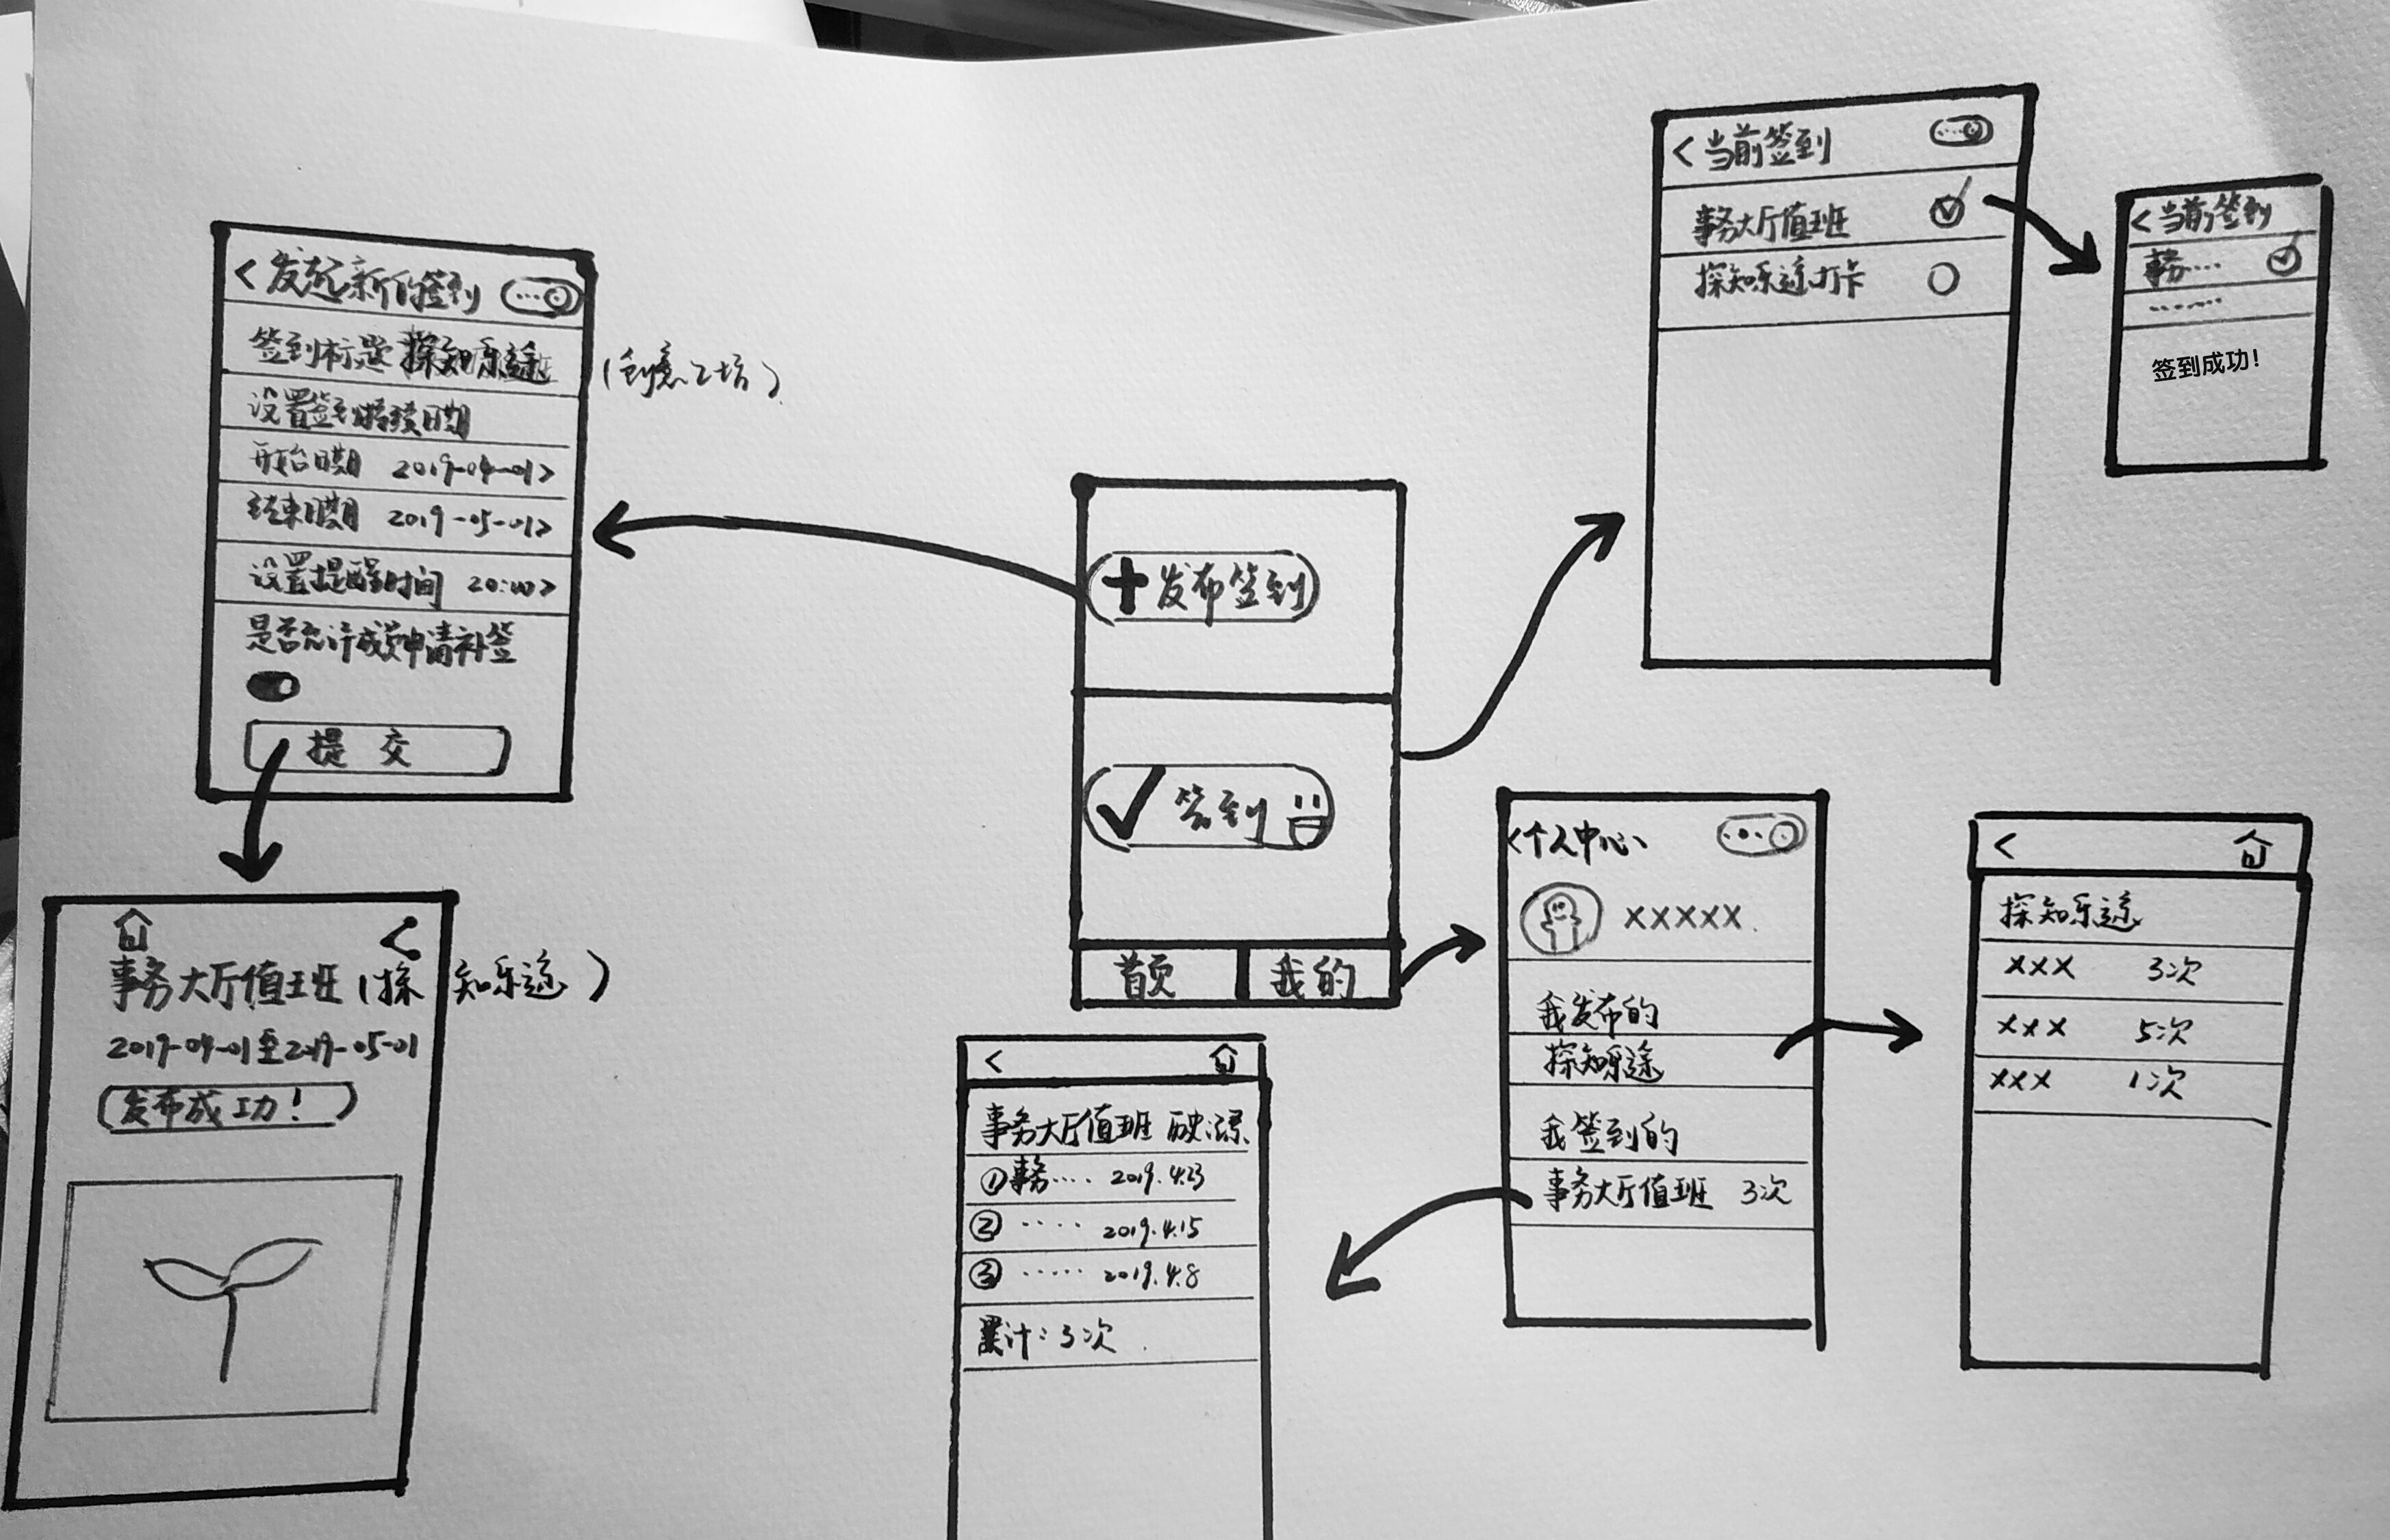 < 发起新的签到
签到标题 探知乐途
(创意工坊)
设置签到持续日期
开始日期 2019-04-01>
结束日期 2019-05-01>
设置提醒时间 20:00>
是否允许成员申请补签
提交
事务大厅值班(探知乐途)
2019-04-01至2019-05-01
发布成功!
+发布签到
✓签到
首页 我的
<当前签到
事务大厅值班
探知乐途打卡
<当前签到
事务....
.......
签到成功!
<个人中心
XXXXX.
我发布的
探知乐途
我签到的
事务大厅值班 3次
<
探知乐途
XXX 3次
XXX 5次
XXX 1次
<
事务大厅值班 历史记录
①事务.... 2019.4.23
② .... 2019.4.15
③ ..... 2019.4.8
累计:3次.